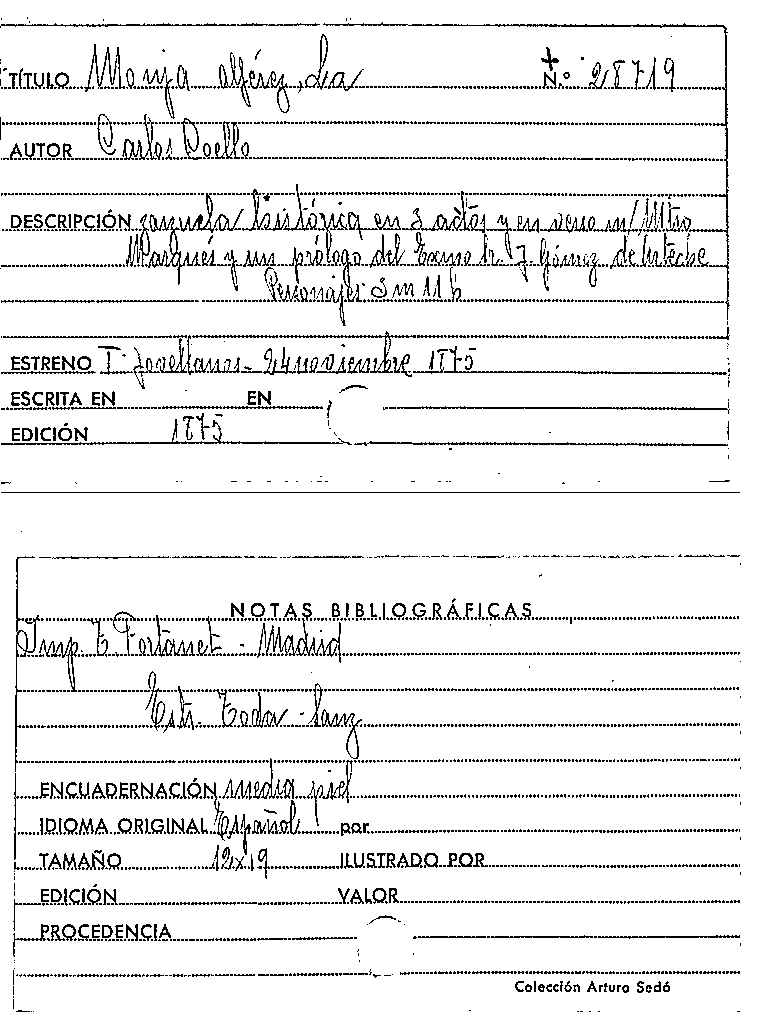 TÍTULO Monja alférez, La N.º 28719
AUTOR Carlos Coello
DESCRIPCIÓN zarzuela histórica en 3 actos y en verso m/ Mtro
Marqués y un prólogo del Exmo Sr. J. Gómez de Arteche
Personajes 3 m 11 h
ESTRENO T. Jovellanos - 24 noviembre 1875
ESCRITA EN EN
EDICIÓN 1875
NOTAS BIBLIOGRÁFICAS
Imp. T. Fortanet - Madrid
Estr. Toda - Sanz
ENCUADERNACIÓN media piel
IDIOMA ORIGINAL Español por
TAMAÑO 12x19 ILUSTRADO POR
EDICIÓN VALOR
PROCEDENCIA
Colección Arturo Sedó